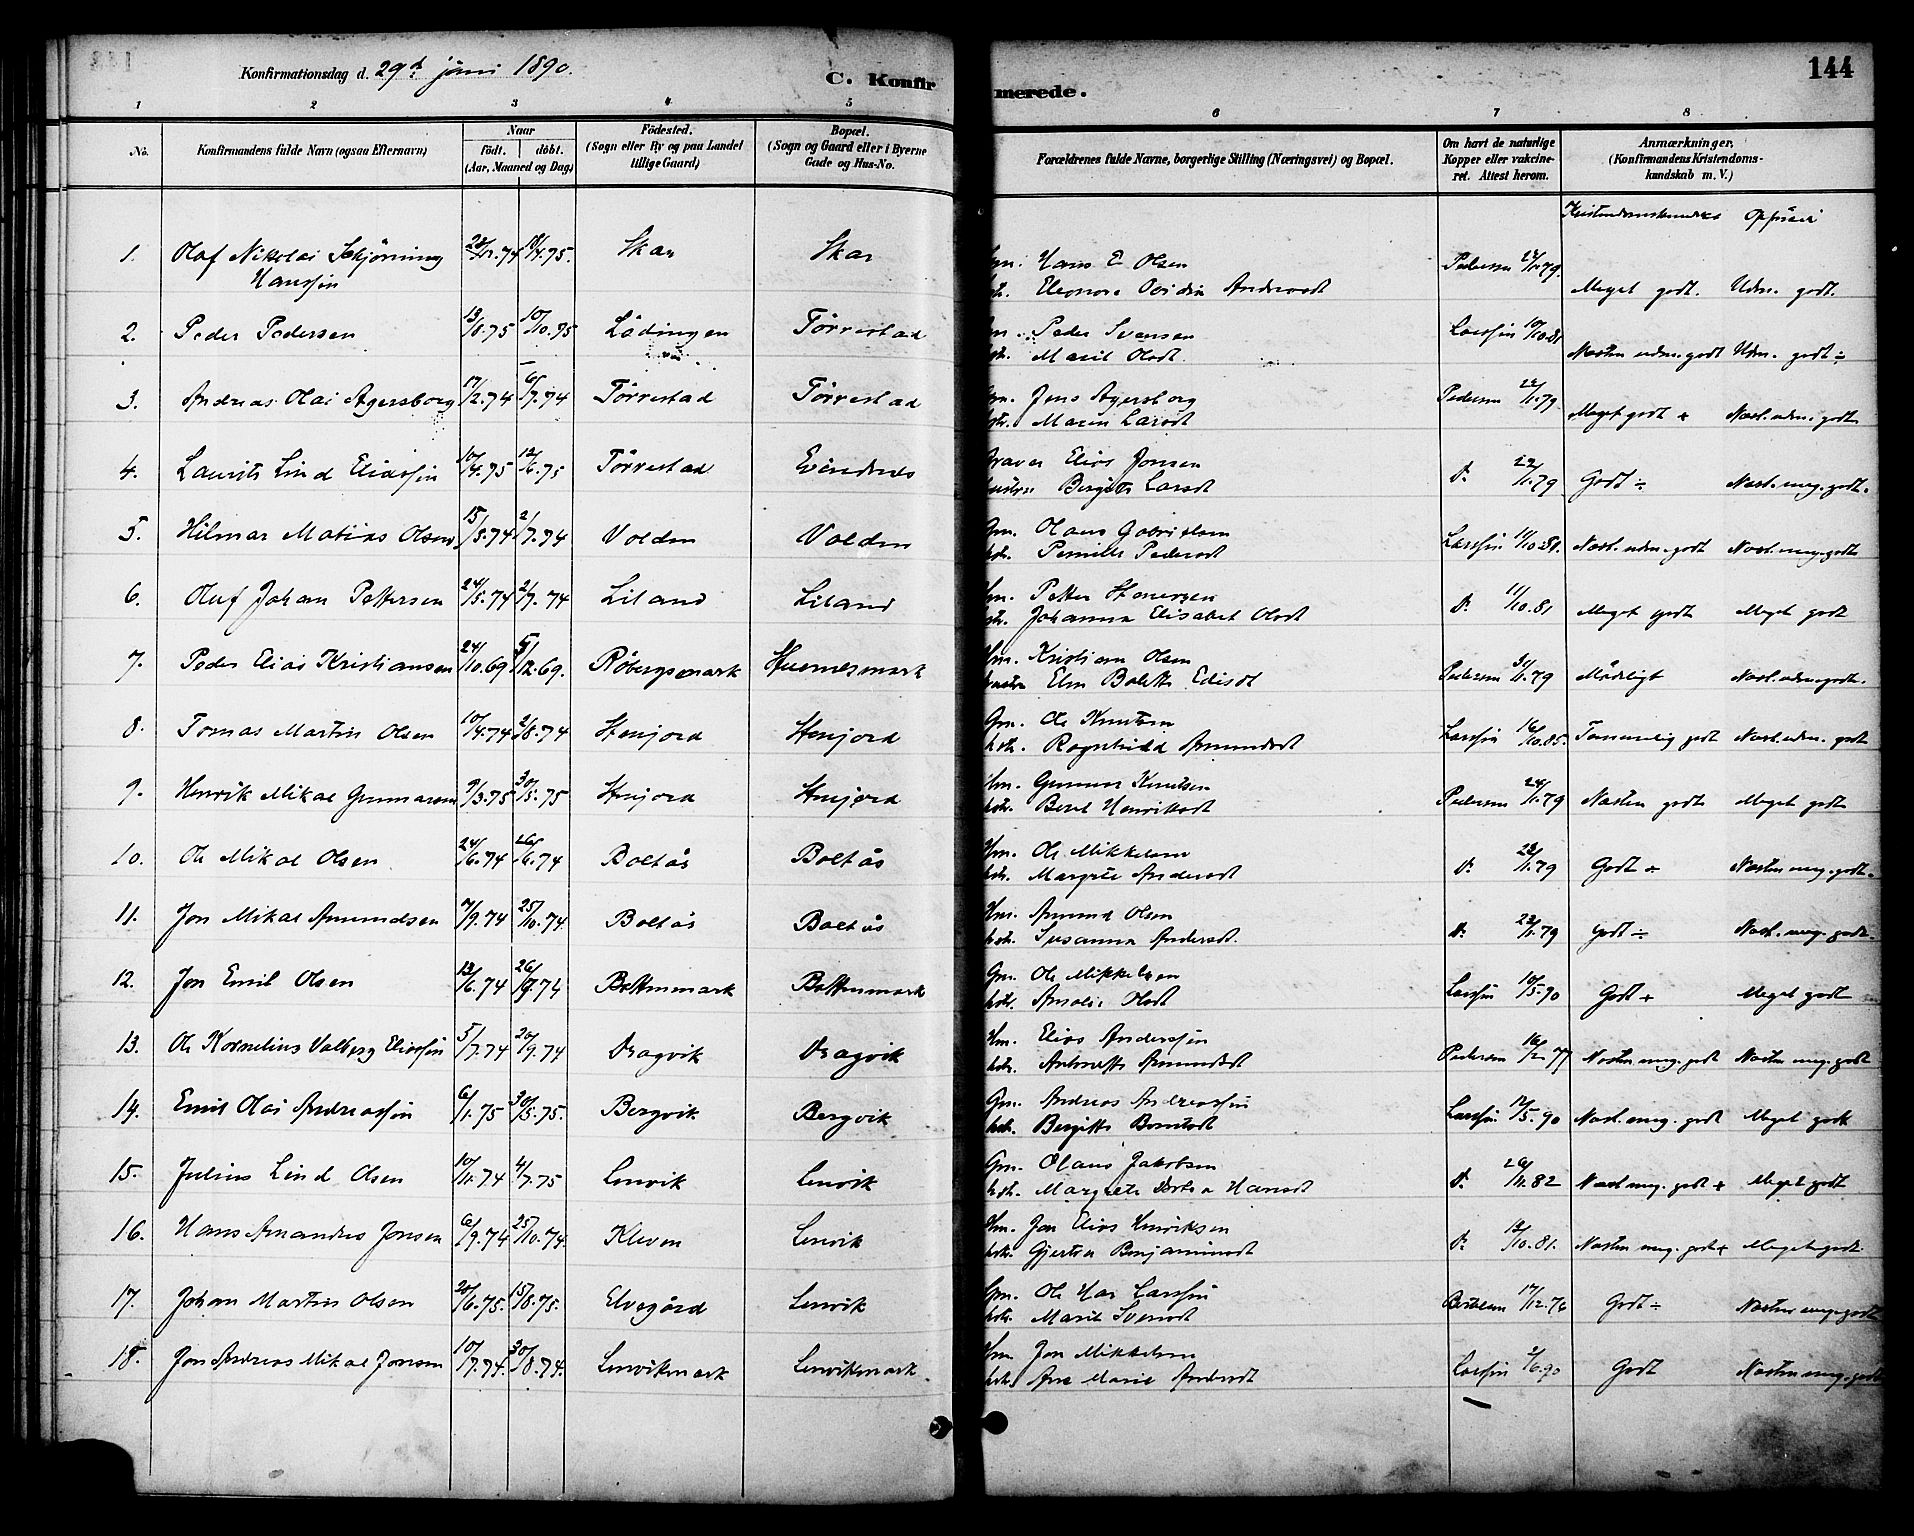 Konfirmationsdag d. 29d. juni 1890.
C. Konfirmerede.
144
1 2 3 4 5 6 7 8
No. Konfirmandens fulde Navn (ogsaa Efternavn) Naar født. døbt. (Aar, Maaned og Dag) Fødested. (Sogn eller By og paa Landet tillige Gaard) Bopæl. (Sogn og Gaard eller i Byerne Gade og Hus-No.) Forældrenes fulde Navne, borgerlige Stilling (Næringsvei) og Bopæl. Om havt de naturlige Kopper eller vakcineret. Attest herom. Anmærkninger. (Konfirmandens Kristendomskundskab m. V.)
Kristendomskundsk. Opførsel
1. Olaf Nikolai Schjønning Hanssen 28/12.74 18/4.75. Skar Skar
Hans E Olsen
Eleonora Andersdt
Pedersen 24/1.79. Meget godt. Udm. godt.
2. Peder Pedersen 13/8.75 10/10.75 Lødingen Tørrestad
Peder Svensen
Marit Olsdt.
Larssen 10/10.81 Næsten udm. godt Udm. godt ÷
3. Andreas Olai Agersborg 17/2.74 6/7.74 Tørrestad Tørrestad
Gm. Jens Agersborg
hstr. Maren Larsdt
Pedersen 22/1.79 Meget godt + Næst. udm. godt
4. Laurits Lind Eliassen 10/4.75 12/6.75 Tørrestad Evindnes
Graver Elias Jonsen
hustru Bergitte Larsdt
D. 22/1.79 Godt ÷ Næst. meg. godt.
5. Hilmar Matias Olsen 15/3.74 2/7.74 Volden Volden
Gm. Olaus Gabrielsen
hstr. Pernille Pedersdt
Larssen 11/10.81. Næst. udm. godt Næst. meg. godt
6. Oluf Johan Pettersen 24/5.74 2/7.74 Liland Liland
Hm. Petter
hstr. Johanna Elisabet Olsdt
D. 11/10.81 Meget godt Meget godt
7. Peder Elias Kristiansen 24/10.69 5/12.69. Røbergsmark
Hm. Kristian Olsen
hustru Elen Bolette
Pedersen 31/1.79 Mådeligt Næst. udm. godt.
8. Tomas Martin Olsen 10/4.74 2/8.74 Stenjord Stenjord
Gm. Ole Knutsen
hstr. Ragnhild Amundsdt
Larssen 16/10.85. Temmelig godt Næst. udm. godt
9. Henrik Mikal Gunnarsen 9/3.75 30/5.75 Stenjord Stenjord
Hm. Gunnar Knutsen
hstr. Beret Henriksdt
Pedersen 24/1.79 Næsten godt Meget godt
10. Ole Mikal Olsen 24/6.74 26/6.74 Boltås Boltås
Hm. Ole Mikkelsen
hstr. Margrete Andersdt
D. 23/1.79 Godt ÷ Næsten meg. godt.
11. Jon Mikal Amundsen 7/9.74 25/10.74. Boltås Boltås
Hm. Amund Olsen
hstr. Susanna Andersdt.
D. 23/1.79 Godt ÷ Næst. meg. godt.
12. Jon Emil Olsen 13/6.74 26/7.74 Bottenmark Bottenmark
Gm. Ole Mikkelsen
hstr. Amalie Olsdt
Larssen 10/5.90 Godt + Meget godt
13. Ole Kornelius Valberg Eliassen 5/7.74 20/9.74 Dragvik Dragvik
Hm. Elias Anderssen
hstr. Antonette Amundsdt
Pedersen 16/2.77 Næsten meg. godt Næsten meg. godt
14. Emil Olai Andreassen 6/1.75 30/5.75. Bergvik Bergvik
Gm. Andreas Andreassen
hstr. Bergitte
Larssen 12/5.90 Næst. meg. godt Meget godt
15. Julius Lind Olsen 10/11.74 4/7.75 Lenvik Lenvik
Gm. Olaus Jakobsen
hstr. Margrete Dortea Hansdt
D. 26/11.82 Næst. meg. godt + Meget godt
16. Hans Amandus Jonsen 6/9.74 25/10.74. Kleven Lenvik
Hm. Jon Elias Henriksen
hstr. Gjertru Benjaminsdt
D. 12/10.81. Næsten meg. godt + Meget godt.
17. Johan Martin Olsen 20/6.75. 15/8.75. Elvegård Lenvik
Gm. Ole Larssen
hstr. Marit Svensdt
17/12.76 Godt ÷ Næsten meg. godt
18. Jon Andreas Mikal Jonsen 10/7.74. 30/8.74. Lenvikmark Lenvikmark
Hm. Jon Mikkelsen
hstr. Ane Marie Andersdt
Larssen 2/6.90 Godt Næsten meg. godt